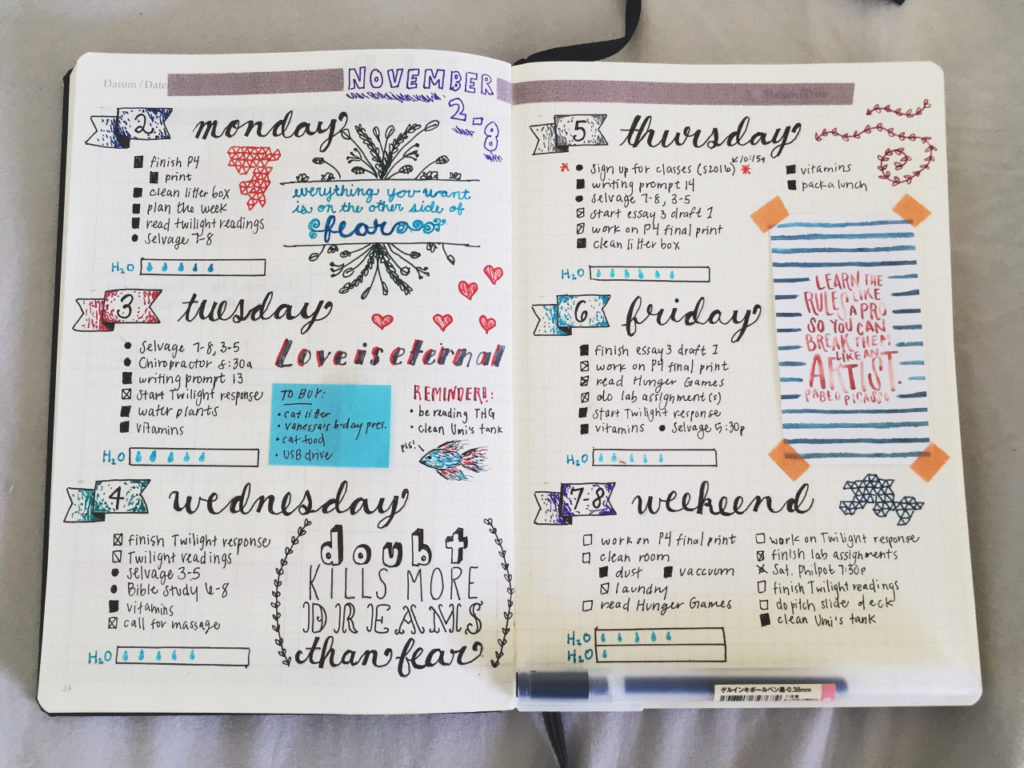 Datum / Date
NOVEMBER
2-8
2 monday
finish P4
print
clean litter box
plan the week
read twilight readings
Selvage 7-8
H2O
everything you want
is on the other side of
fear
3 tuesday
Selvage 7-8, 3-5
Chiropractor 8:30a
writing prompt 13
Start Twilight response
water plants
vitamins
H2O
Love is eternal
TO BUY:
cat litter
vanessa's b-day pres.
cat food
USB drive
REMINDER!:
be reading THG
clean Umi's tank
pss!
4 wednesday
finish Twilight response
Twilight readings
Selvage 3-5
Bible Study 6-8
vitamins
call for massage
H2O
doubt
KILLS MORE
DREAMS
than fear
24
5 thursday
10:15a
Sign up for classes (S2016)
writing prompt 14
Selvage 7-8, 3-5
start essay 3 draft 1
work on P4 final print
clean litter box
vitamins
pack a lunch
H2O
LEARN THE
RULES LIKE
A PRO
SO YOU CAN
BREAK THEM
LIKE AN
ARTIST.
PABLO PICASSO
6 friday
finish essay 3 draft 1
work on P4 final print
read Hunger Games
do lab assignment(s)
start Twilight response
vitamins Selvage 5:30p
H2O
7-8 weekeend
work on P4 final print
clean room
dust vaccuum
laundry
read Hunger Games
work on Twilight response
finish lab assignments
Sat. Philpot 7:30p
finish Twilight readings
do pitch slide deck
clean Umi's tank
H2O
H2O
ゲルインキボールペン黒・0.38mm